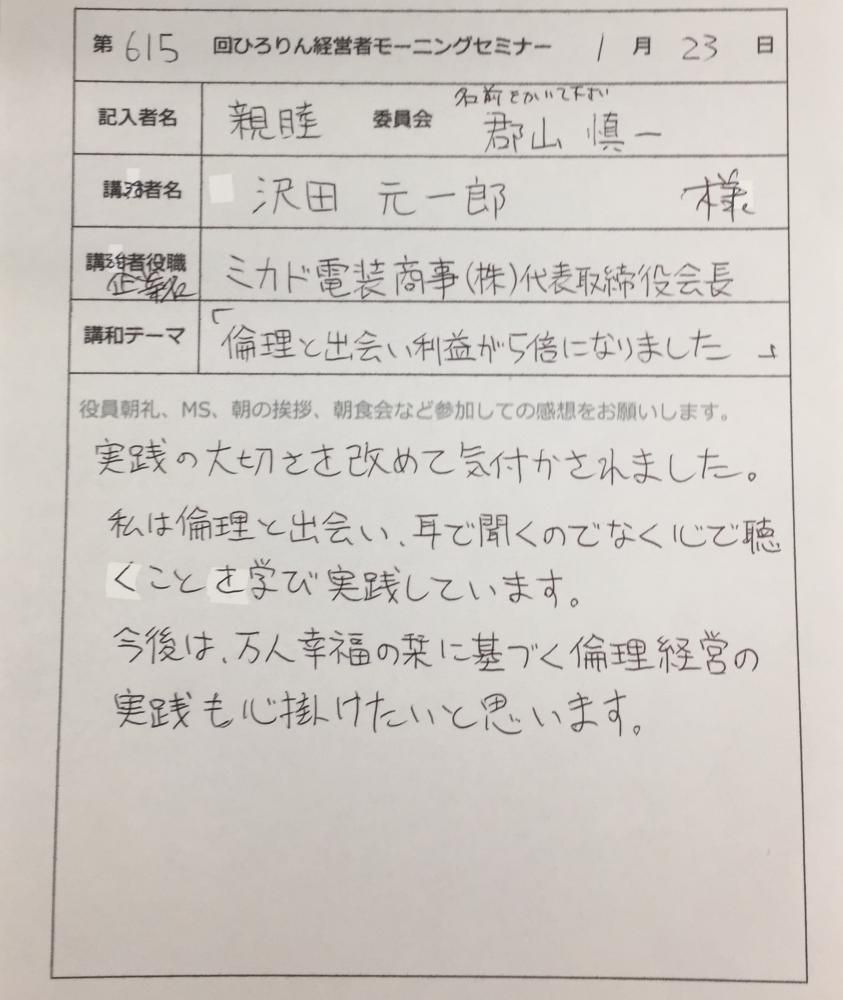 第 615 回ひろりん経営者モーニングセミナー 1 月 23 日
名前をかいて下さい
記入者名 親睦 委員会 郡山 慎一
講話者名 沢田 元一郎 様
講話者役職 ミカド電装商事(株)代表取締役会長
企業名
講和テーマ 「倫理と出会い利益が5倍になりました」
役員朝礼、MS、朝の挨拶、朝食会など参加しての感想をお願いします。
実践の大切さを改めて気付かされました。
私は倫理と出会い、耳で聞くのでなく心で聴
くことを学び実践しています。
今後は、万人幸福の栞に基づく倫理経営の
実践も心掛けたいと思います。